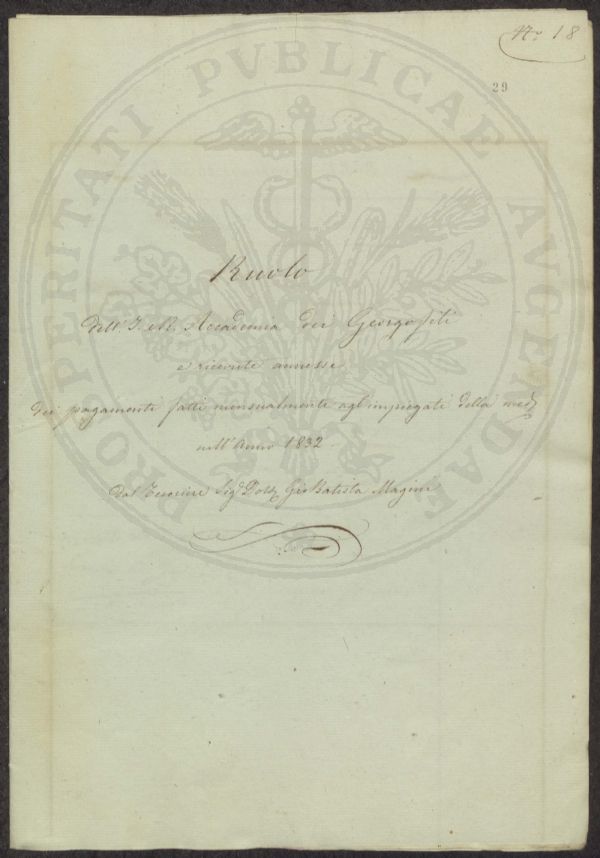 N.º 18
29
PROSPERITATI PVBLICAE AVGENDAE
Ruolo
dell' I. e R. Accademia dei Georgofili
e ricevute annesse
dei pagamenti fatti mensualmente agl'impiegati della med.
nell'Anno 1832
dal Sig. Dott. Gio Batista Magini